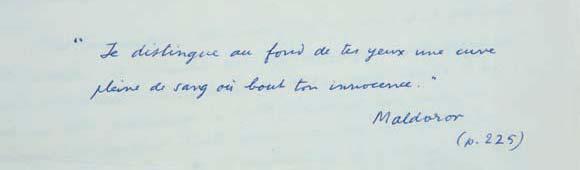 " Je distingue au fond de tes yeux une cuve
pleine de sang où bout ton innocence. "
Maldoror
(p. 225)